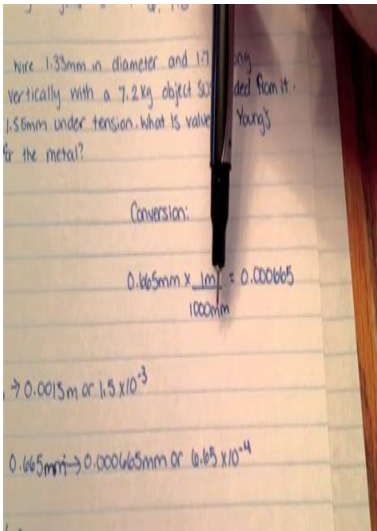 wire 1.33mm in diameter and 1.7 ong
vertically with a 7.2kg object sus ded from it.
1.56mm under tension. What is value Young's
for the metal?
Conversion:
0.665mm x 1m = 0.000665
1000mm
→ 0.0015m or 1.5 x 10⁻³
0.665mm → 0.000665mm or 6.65 x 10⁻⁴